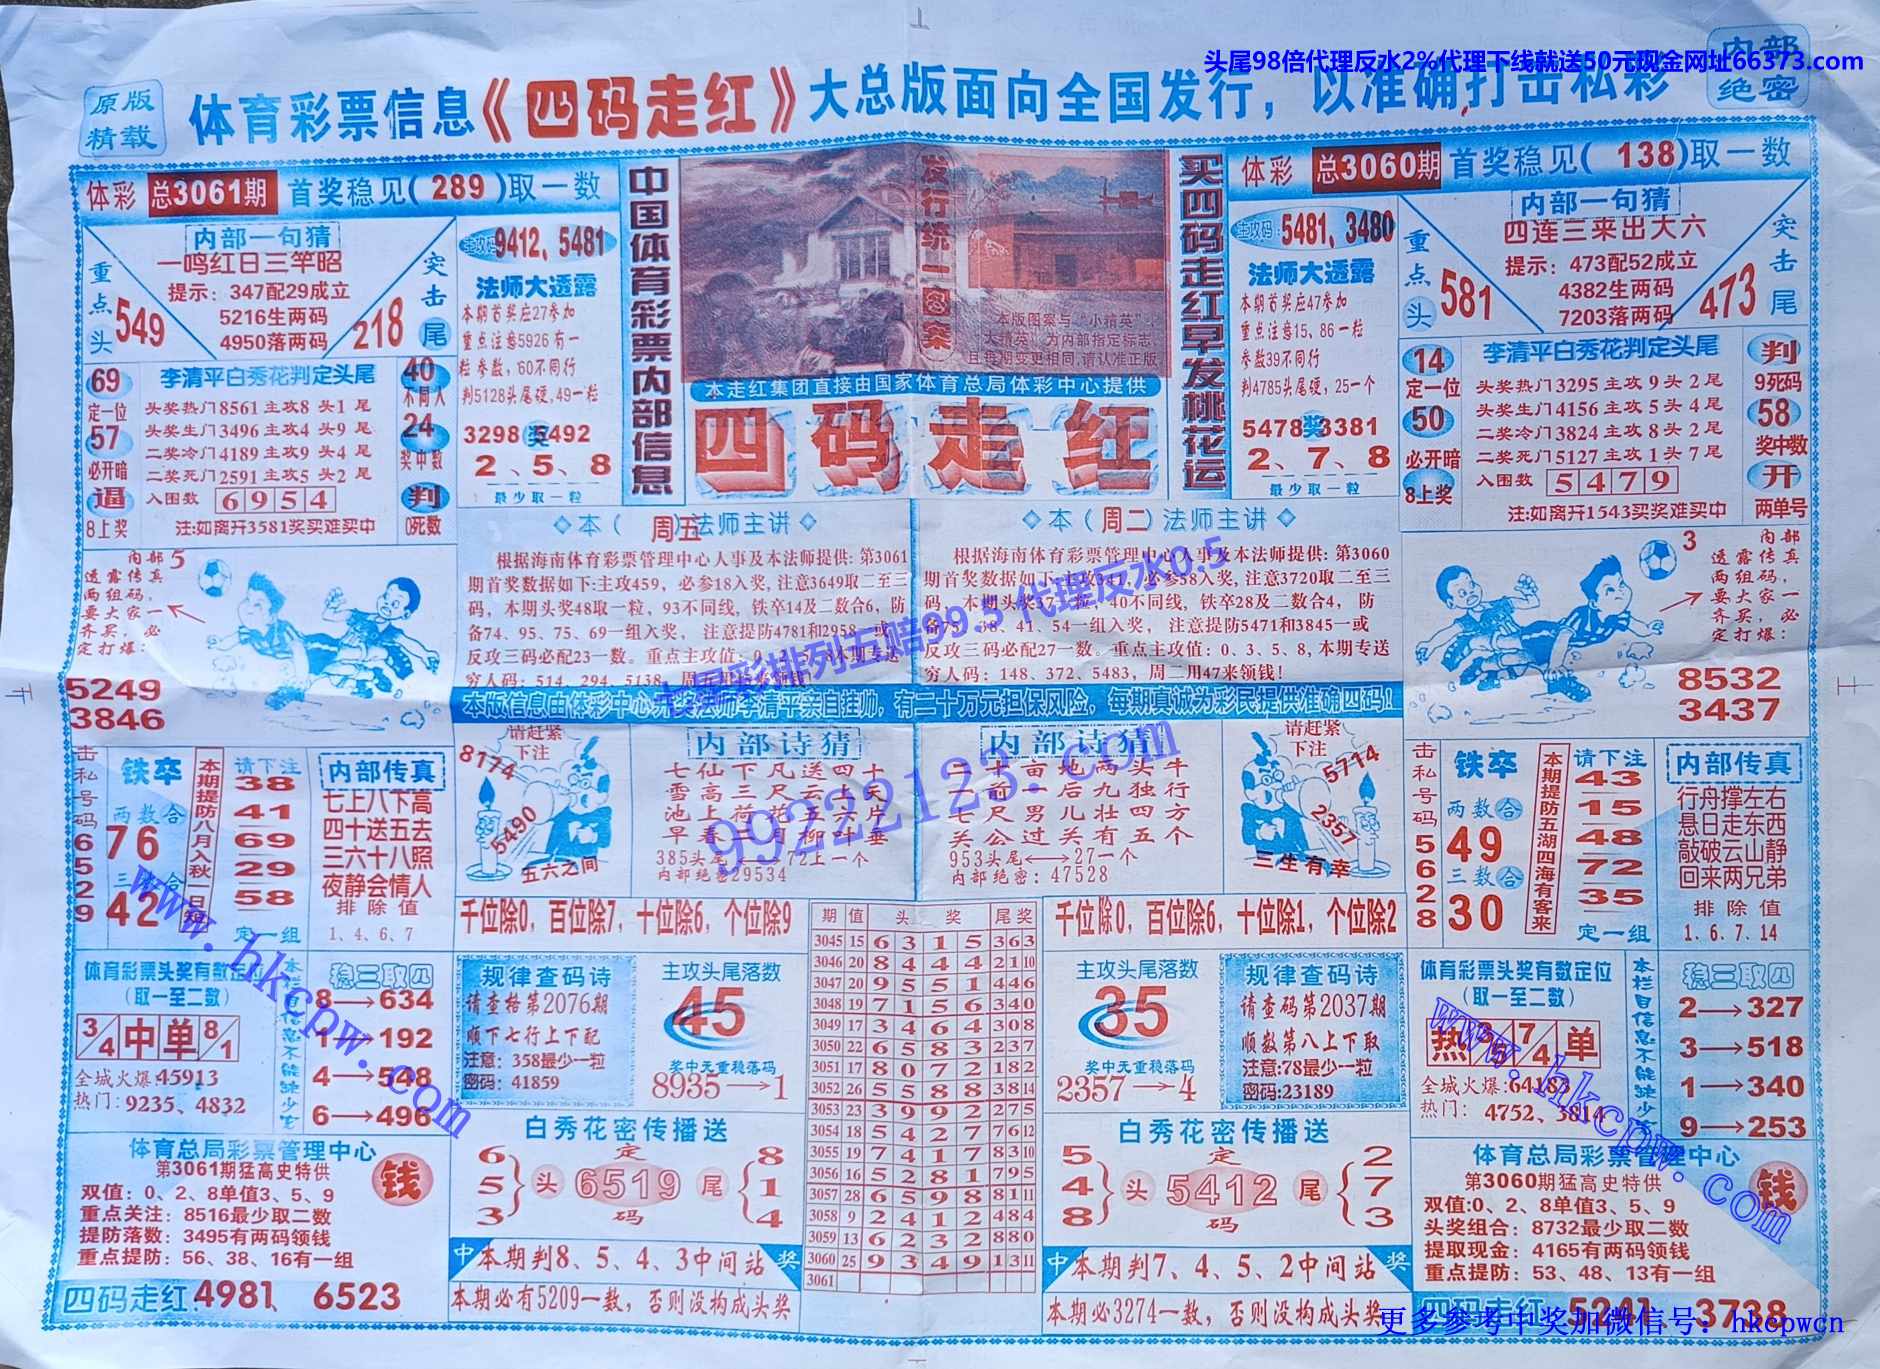 头尾98倍代理反水2%代理下线就送50元现金网址66373.com
原版
精载
体育彩票信息《四码走红》大总版面向全国发行，以准确打击私彩
内部
绝密
体彩 总3061期 首奖稳见(289)取一数
内部一句猜
一鸣红日三竿昭
提示：347配29成立
5216生两码
4950落两码
重点头
549
突击尾
218
主攻码：9412、5481
法师大透露
本期首奖应27参加
重点注意5926有一
粒参数，60不同行
判5128头尾硬，49一粒
3298奖5492
2、5、8
最少取一粒
69
定一位
57
必开暗
逼
8上奖
李清平白秀花判定头尾
头奖热门8561主攻8头1尾
头奖生门3496主攻4头9尾
二奖冷门4189主攻9头4尾
二奖死门2591主攻5头2尾
入围数 6954
注:如离开3581奖买难买中
40
不同人
24
奖中数
判
0死数
中国体育彩票内部信息
发行统一图案
本版图案与“小精英”，
大精英，为内部指定标志
且每期变更相同，请认准正版
本走红集团直接由国家体育总局体彩中心提供
四码走红
买四码走红早发桃花运
体彩 总3060期 首奖稳见(138)取一数
主攻码：5481、3480
法师大透露
本期首奖应47参加
重点注意15、86一粒
参数39不同行
判4785头尾硬，25一个
5478奖3381
2、7、8
最少取一粒
内部一句猜
四连三来出大六
提示：473配52成立
4382生两码
7203落两码
重点头
581
突击尾
473
14
定一位
50
必开暗
8上奖
李清平白秀花判定头尾
头奖热门3295主攻9头2尾
头奖生门4156主攻5头4尾
二奖冷门3824主攻8头2尾
二奖死门5127主攻1头7尾
入围数 5479
注:如离开1543买奖难买中
判
9死码
58
奖中数
开
两单号
内部5
透露传真
两组码，
要大家一
齐买，必
定打爆：
5249
3846
◇本（周五）法师主讲◇
根据海南体育彩票管理中心人事及本法师提供：第3061
期首奖数据如下:主攻459，必参18入奖，注意3649取二至三
码，本期头奖48取一粒，93不同线，铁卒14及二数合6，防
备74、95、75、69一组入奖，注意提防4781和2958一或
反攻三码必配23一数。重点主攻值：0、
8本期专送
穷人码：514、294、5138、
◇本（周二）法师主讲◇
根据海南体育彩票管理中心人事及本法师提供：第3060
期首奖数据如下:主攻341，必参58入奖，注意3720取二至三
码，本期头奖37一粒，40不同线，铁卒28及二数合4，防
备75、38、41、54一组入奖，注意提防5471和3845一或
反攻三码必配27一数。重点主攻值：0、3、5、8，本期专送
穷人码：148、372、5483，周二用47来领钱！
七星彩排列五赔99.5代理反水0.5
3 内部
透露传真
两组码，
要大家一
齐买，必
定打爆：
8532
3437
本版信息由体彩中心开奖法师李清平亲自挂帅，有二十万元担保风险，每期真诚为彩民提供准确四码！
击私号码6529
铁卒
两数合
76
三数合
42
本期提防八月入秋一日短
请下注
38
41
69
29
58
定一组
内部传真
七上八下高
四十送五去
三六十八照
夜静会情人
排除值
1、4、6、7
请赶紧
下注
8174
5490
五六之间
内部诗猜
七仙下凡送四十
雪高三尺云上天
池上荷花五六片
早春二月柳叶垂
385头尾⟷72上一个
内部绝密29534
内部诗猜
二十亩地两头牛
一前一后九独行
七尺男儿壮四方
关公过关有五个
953头尾⟷27一个
内部绝密：47528
99222123.com
请赶紧
下注
5714
2357
三生有幸
击私号码5628
铁卒
两数合
49
三数合
30
本期提防五湖四海有客来
请下注
43
15
48
72
35
定一组
内部传真
行舟撑左右
悬日走东西
敲破云山静
回来两兄弟
排除值
1.6.7.14
千位除0，百位除7，十位除6，个位除9
千位除0，百位除6，十位除1，个位除2
期 值 头奖 尾奖
3045 15 6315 363
3046 20 8444 2110
3047 20 9551 446
3048 19 7156 340
3049 17 3464 308
3050 22 6583 237
3051 17 8072 182
3052 26 5588 3814
3053 23 3992 275
3054 18 5427 7612
3055 19 7417 8310
3056 16 5281 795
3057 28 6598 8111
3058 9 2412 484
3059 13 6232 880
3060 25 9349 1311
3061
体育彩票头奖有数定位
（取一至二数）
3/4 中单 8/1
全城火爆:45913
热门：9235、4832
本栏目信息不能缺少它
稳三取四
8→634
1→192
4→548
6→496
www.hkcpw.com
规律查码诗
请查格第2076期
顺下七行上下配
注意：358最少一粒
密码：41859
主攻头尾落数
45
奖中无重稳落码
8935→1
主攻头尾落数
35
奖中无重稳落码
2357→4
规律查码诗
请查码第2037期
顺数第八上下取
注意:78最少一粒
密码:23189
体育彩票头奖有数定位
（取一至二数）
热 7/4 单
全城火爆：64183
热门：4752、3814
本栏目信息不能缺少它
稳三取四
2→327
3→518
1→340
9→253
www.hkcpw.com
体育总局彩票管理中心
第3061期猛高史特供
双值：0、2、8单值3、5、9
重点关注：8516最少取二数
提防落数：3495有两码领钱
重点提防：56、38、16有一组
钱
四码走红：4981、6523
白秀花密传播送
653
头
定
6519
码
尾
814
中 本期判8、5、4、3中间站 奖
本期必有5209一数，否则没构成头奖
白秀花密传播送
548
头
定
5412
码
尾
273
中 本期判7、4、5、2中间站 奖
本期必3274一数，否则没构成头奖
体育总局彩票管理中心
第3060期猛高史特供
双值:0、2、8单值3、5、9
头奖组合：8732最少取二数
提取现金：4165有两码领钱
重点提防：53、48、13有一组
钱
四码走红：5241、3738
更多参考中奖加微信号：hkcpwcn